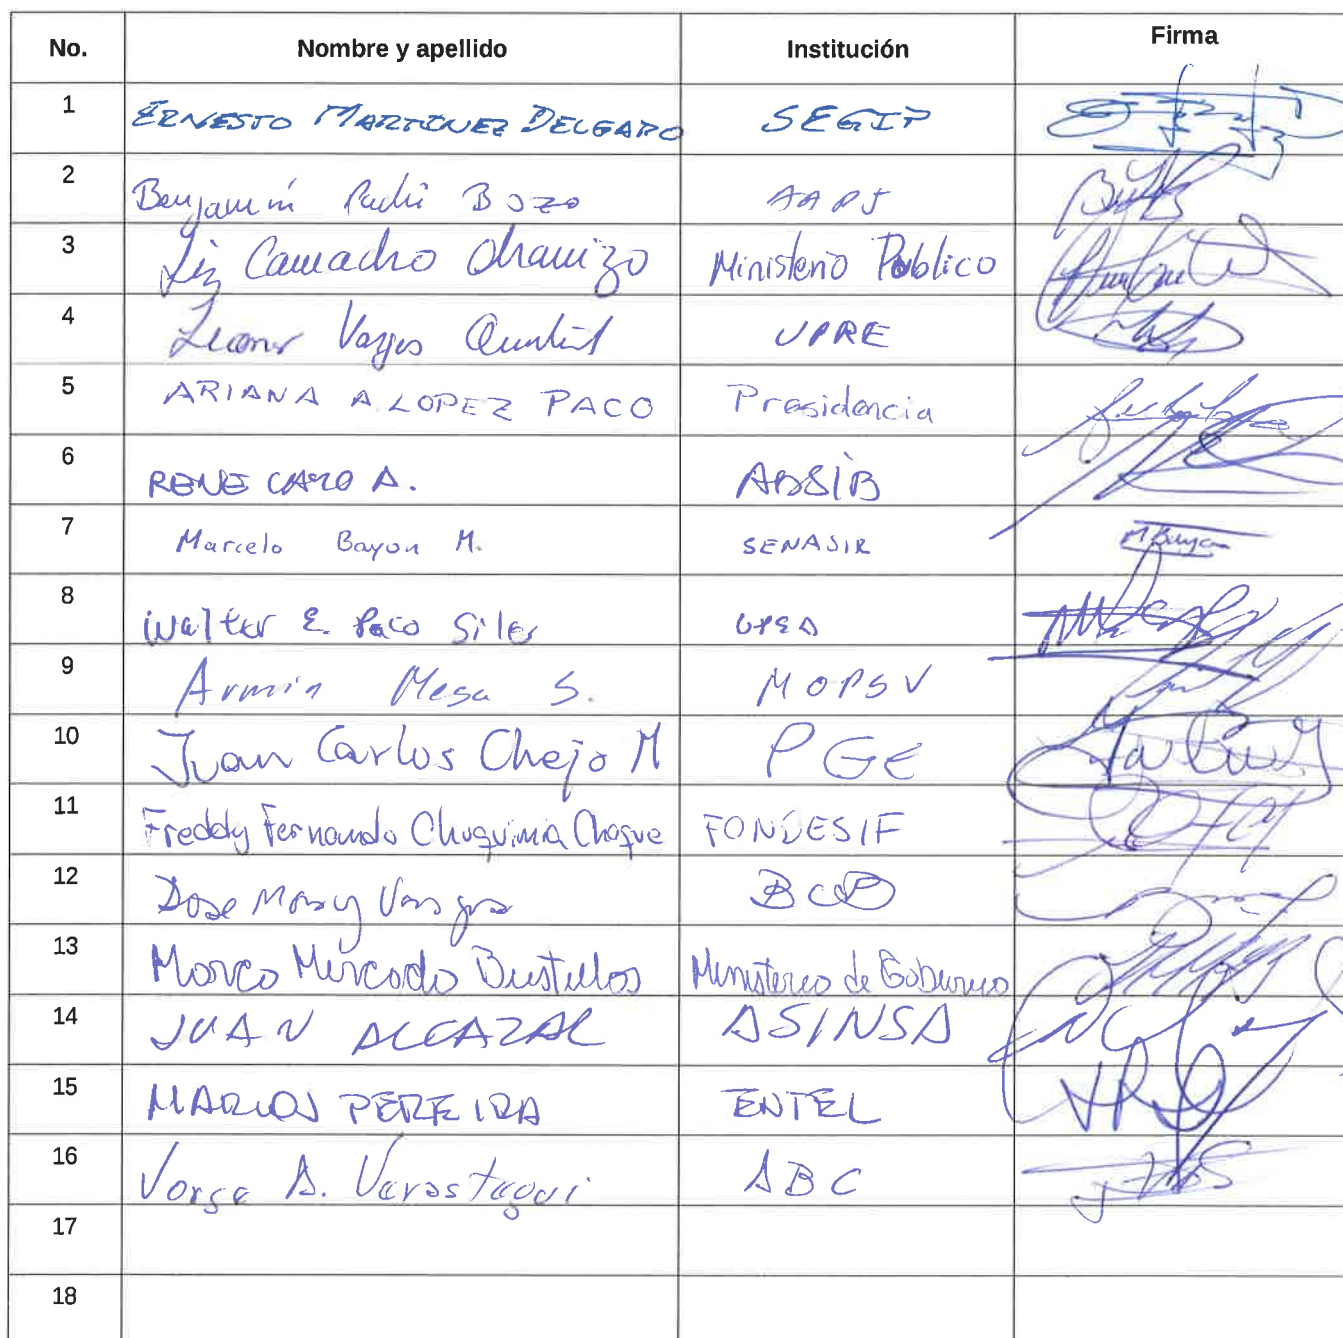 No. Nombre y apellido Institución Firma
1 ERNESTO MARTINEZ DELGADO SEGIP
2 Benjamín Bozo AAPS
3 Liz Camacho Ministerio Público
4 Leonor Vargas UPRE
5 ARIANA A. LOPEZ PACO Presidencia
6 RENE CARO A. ADSIB
7 Marcelo Bayon M. SENASIR
8 Walter E. Paco Siles UPEA
9 Armin Mesa S. MOPSV
10 Juan Carlos Chejo M PGE
11 Freddy Fernando Chuquimia Choque FONDESIF
12 Vargas BCB
13 Marco Mercado Bustillos Ministerio de Gobierno
14 JUAN ALCAZAR ASINSA
15 MARCOS PEREIRA ENTEL
16 A. ABC
17
18